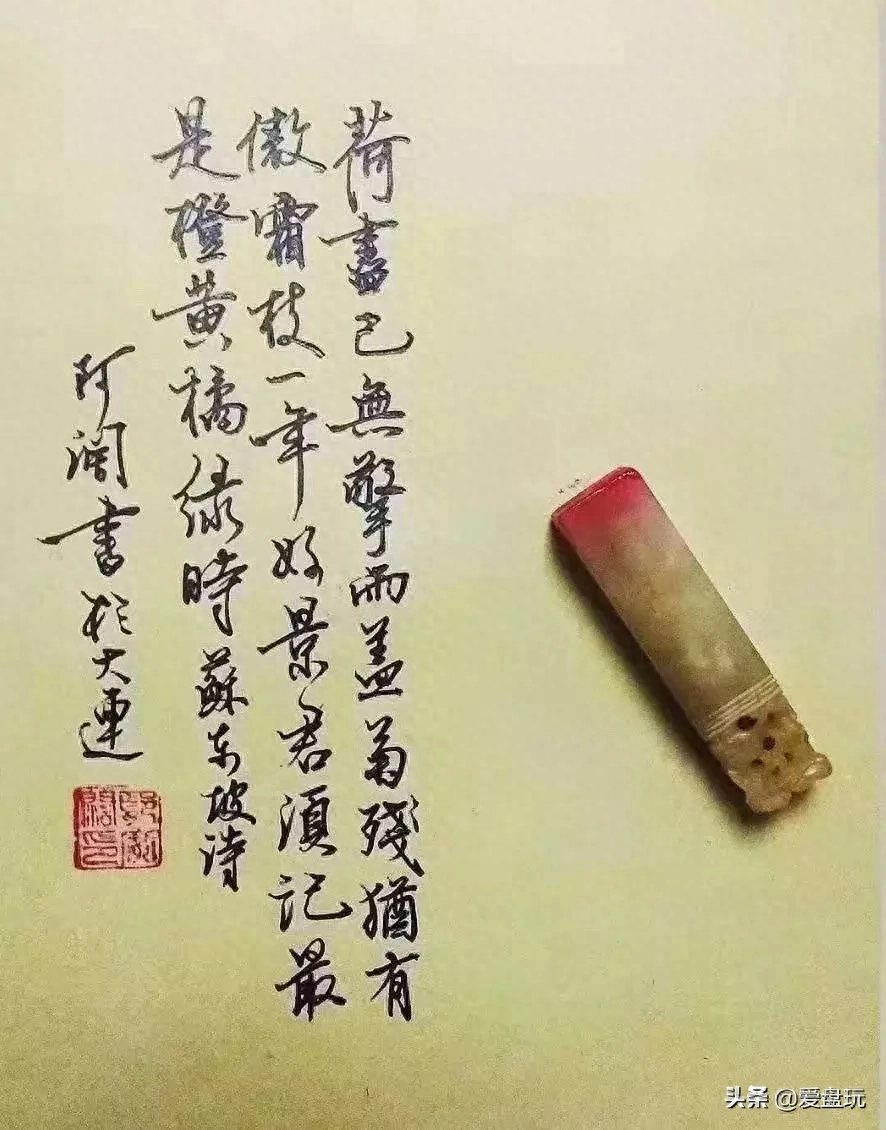 荷盡已無擎雨蓋菊殘猶有
傲霜枝一年好景君須記最
是橙黃橘緑時蘇東坡詩
阿闊書於大連
头条 @爱盘玩